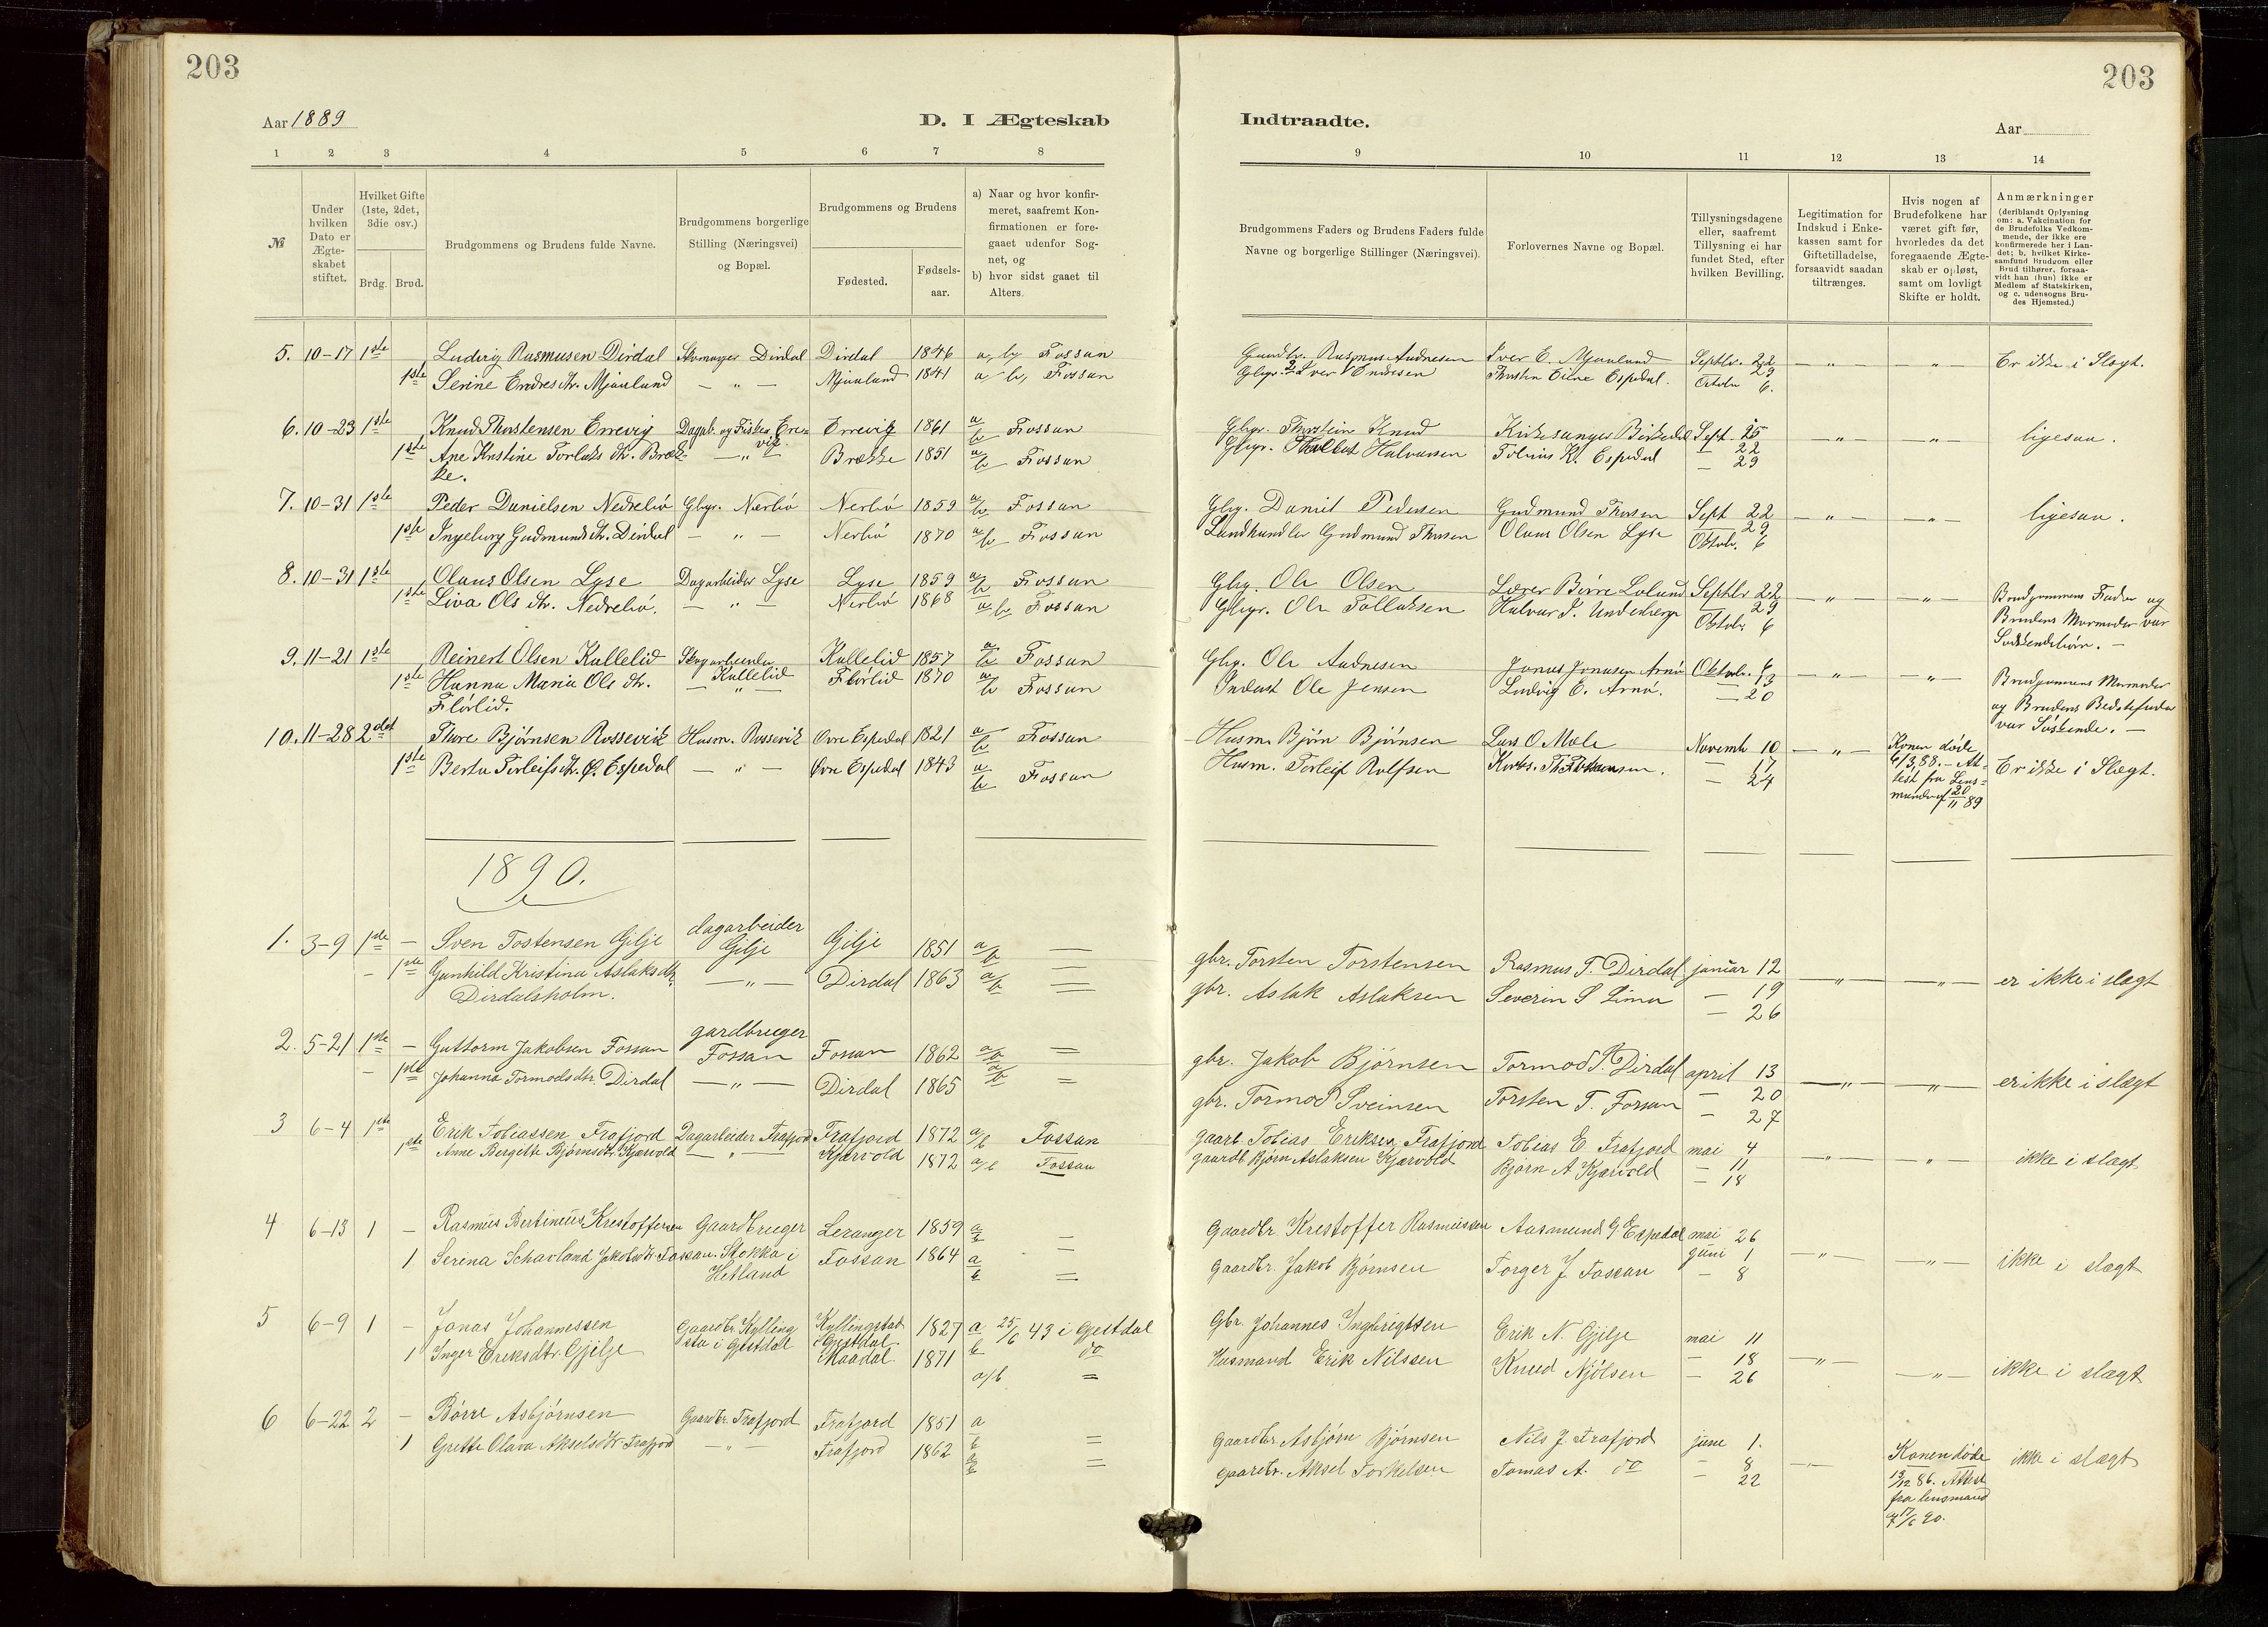 203
Aar 1889
D. I Ægteskab
1 2 3 4 5 6 7 8
№
Under hvilken Dato er Ægteskabet stiftet.
Hvilket Gifte (1ste, 2det, 3die osv.)
Brdg. Brud.
Brudgommens og Brudens fulde Navne.
Brudgommens borgerlige Stilling (Næringsvei) og Bopæl.
Brudgommens og Brudens
Fødested.
Fødselsaar.
a) Naar og hvor konfirmeret, saafremt Konfirmationen er foregaaet udenfor Sognet, og
b) hvor sidst gaaet til Alters.
5. 10-17 1ste Ludvig Rasmusen Dirdal Skomager Dirdal Dirdal 1846 a, b, Fossan
1ste Serine Endresdtr. Mjaulund — " — Mjaulund 1841 a, b, Fossan
6. 10-23 1ste Knud Thorstensen Errevig Dagarb. og Fisker Erre- Errevig 1861 a/b Fossan
vig.
1ste Ane Kristine Torlaks dtr. Bræk- — " — Brække 1851 a/b Fossan
ke.
7. 10-31 1ste Peder Danielsen Nedrebø Gbgr. Nerbø Nerbø 1859 a/b Fossan
1ste Ingeborg Gudmunds dtr. Dirdal — " — Nerbø 1870 a/b Fossan
8. 10-31 1ste Olaus Olsen Lyse Dagarbeider Lyse Lyse 1859 a/b Fossan
1ste Liva Ols dtr. Nedrebø. — " — Nerbø 1868 a/b Fossan
9. 11-21 1ste Reinert Olsen Kallelid Kallelid 1857 a/b Fossan
Kallelid
1ste Hanna Maria Ols dtr. — " — Flørlid 1870 a/b Fossan
Flørlid.
10. 11-28 2det Thore Bjørnsen Rossevik Husm. Rossevik Øvre Espedal 1821 a/b Fossan
1ste Berta Torleifs dtr. Ø. Espedal — " — Øvre Espedal 1843 a/b Fossan
1890.
dagarbeider
1. 3-9 1ste — Sven Tostensen Gilje Gilje Gilje 1851 a/b —
— 1ste Gunhild Kristina Aslaksdtr. — " — Dirdal 1863 a/b —
Dirdalsholm.
gardbruger
2. 5-21 1ste — Guttorm Jakobsen Fossan Fossan Fossan 1862 a/b =
— 1ste Johanna Tormodsdtr. Dirdal — " — Dirdal 1865 a/b =
3 6-4 1ste Erik Tobiassen Frafjord Dagarbeider Frafjord Frafjord 1872 a/b Fossan
1ste Anne Bergette Bjørnsdtr. Kjærvold — " — Kjærvold 1872 a/b Fossan
4 6-13 1 — Rasmus Bertineus Krestoffersen Gaardbruger Leranger 1859 a/b —
1 Serina Schavland Jakobsdtr. Fossan. Stokka i Fossan 1864 a/b =
Hetland
5 6-9 1 — Jonas Johannessen Gaardbr. Kylling Kyllingstad 1827 a 25/6 43 i Gjestdal
sta i Gjestdal i Gjestdal b do
1 Inger Eriksdtr. Gjilje Maadal 1871 a/b =
6 6-22 2 — Børre Asbjørnsen Gaardbr. Frafjord Frafjord 1851 a
b =
1 Grette Olava Akselsdtr. Frafjord — " — Frafjord 1862 a/b =
203
Indtraadte.
Aar
9 10 11 12 13 14
Brudgommens Faders og Brudens Faders fulde Navne og borgerlige Stillinger (Næringsvei).
Forlovernes Navne og Bopæl.
Tillysningsdagene eller, saafremt Tillysning ei har fundet Sted, efter hvilken Bevilling.
Legitimation for Indskud i Enkekassen samt for Giftetilladelse, forsaavidt saadan tiltrænges.
Hvis nogen af Brudefolkene har været gift før, hvorledes da det foregaaende Ægteskab er opløst, samt om lovligt Skifte er holdt.
Anmærkninger (deriblandt Oplysning om: a. Vakcination for de Brudefolks Vedkommende, der ikke ere konfirmerede her i Landet; b. hvilket Kirkesamfund Brudgom eller Brud tilhører, forsaavidt han (hun) ikke er Medlem af Statskirken, og c. udensogns Brudes Hjemsted.)
Gaardbr. Rasmus Audnesen Iver E. Mjaulund Septbr. 22 — " — — " — Er ikke i Slægt.
29
Gbgr. Iver Endresen Espedal. October 6.
Gbgr. Thorsteine Knud Kirkesanger Birkedal Sept. 15 — " — " ligesaa.
22
Gbgr. Halvorsen Tobias K. Espedal — 29
Gbg. Daniel Pedersen Gudmund Thorsen Sept 22 — " — — " — ligesaa.
29
Landhandler Gudmund Thorsen Olaus Olsen Lyse Oktob. 6
Gbg. Ole Olsen Lærer Børre Lølund Septbr 22 — " — — " — Brudgommens Fader og
29 Brudens Mormoder var
Gbgr. Ole Tollaksen Halvar S. Underberge Oktob. 6 Sødskendebørn. —
Gbg. Ole Audnesen Jonas Jonasen Arnø Oktob. 6 — " — — " — Brudgommens Mormoder
13 og Brudens Bedstefader
Inderst Ole Jensen Ludvig E. Arnø. — 20 var Søskende. —
Husm. Bjørn Bjørnsen Lars O Mæle Novemb. 10 — " — Konen døde
— 17 6/3, 88. — At-
Husm. Torleif Rolfsen — 24 test fra Lens- Er ikke i Slægt.
mand af 20/11 89
gbr. Torsten Torstensen Rasmus T. Dirdal januar 12 — " — — " — er ikke i slægt
gbr. Aslak Aslaksen Severin S Lima — 19
— 26
gbr. Jakob Bjørnsen Tormod P. Dirdal april 13 — " — — " — er ikke i slægt
— 20
gbr. Tormod Sveinsen Torsten T. Forsan — 27
Gaardb. Tobias Eriksen Frafjord Tobias E Frafjord mai 4 — " — " ikke i slægt
gaardb. Bjørn Aslaksen Kjærvold Bjørn A Kjærvold — 11
— 18
Gaardbr. Krestoffer Rasmussen Aasmund G Espedal mai 26
juni 1 — " — — " — ikke i slægt
Gaardbr. Jakob Bjørnsen Torger J Fossan — 8
Gbr. Johannes Ingbrigtsen Erik N. Gjilje mai 11
Husmand Erik Nilssen Knud Njølsen — 18 — " — — " — ikke i slægt
— 26
Gaardbr Asbjørn Bjørnsen Nils J. Frafjord june 1. Konen døde ikke i slægt
gaardbr. Aksel Torkelsen Tomas A. do — 8 — " — 13/12 86. Attest
22 fra lensmand
af 17/6 90.